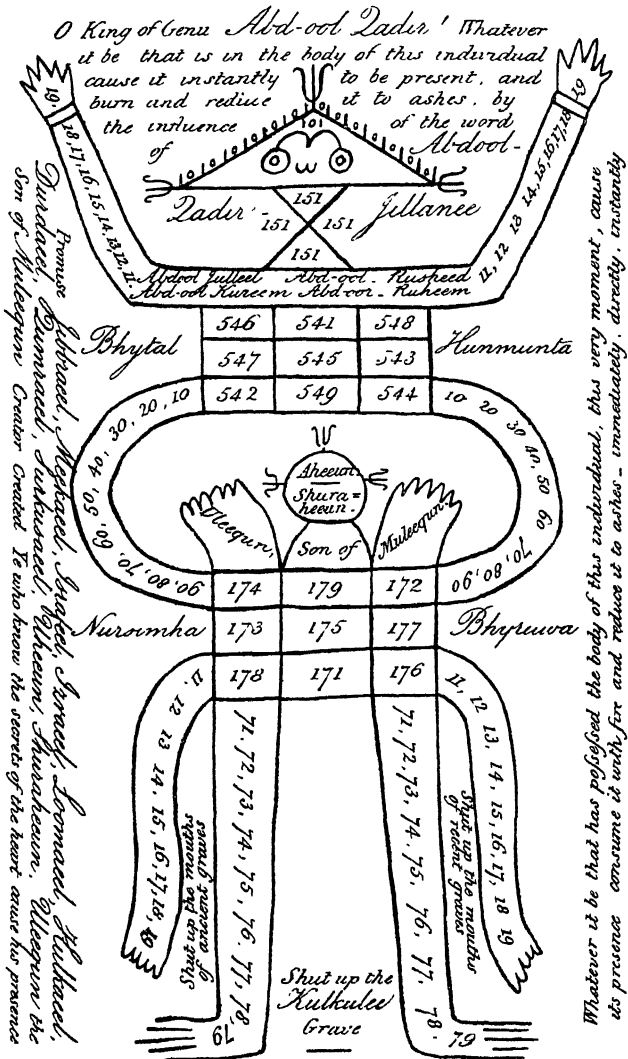 O King of Genii Abd-ool Qadir! Whatever
it be that is in the body of this individual
cause it instantly to be present, and
burn and reduce it to ashes, by
the influence of the word
of Abdool-
Qadir Jillanee
151
151 151
151
19. 19
18, 17, 16, 15, 14, 13, 12, 11. 11, 12 13 14, 15, 16, 17, 18
Abdool Julleel Abd-ool- Rusheed
Abd-ool Kureem Abd-oor- Ruheem
546 541 548
Bhytal 547 545 543 Hunmunta
542 549 544
10, 20, 30, 40, 50, 60, 70, 80, 90 10 20 30 40, 50 60 70, 80, 90
Aheeun.
Shura=
heeun.
Uleequn, Son of Muleequn.
174 179 172
Nursimha 173 175 177 Bhyruwa
178 171 176
11, 12 13 14, 15, 16, 17, 18, 19 11, 12 13, 14, 15, 16, 17, 18 19
71, 72, 73, 74, 75, 76, 77, 78, 79 71, 72, 73, 74, 75, 76, 77, 78, 79
Shut up the mouths
of ancient graves
Shut up the mouths
of recent graves
Shut up the
Kulkulee
Grave
Promise Jibbraeel, Meekaeel, Israfeel, Izraeel, Loomaeel, Hulkaeel,
Durdaeel, Humraeel, Surkusaeel, Uheeun, Shuraheeun, Uleequn the
Son of Muleequn Creator Created Ye who know the secrets of the heart cause his presence
Whatever it be that has possessed the body of this individual, this very moment, cause
its presence consume it with fire and reduce it to ashes - immediately, directly, instantly